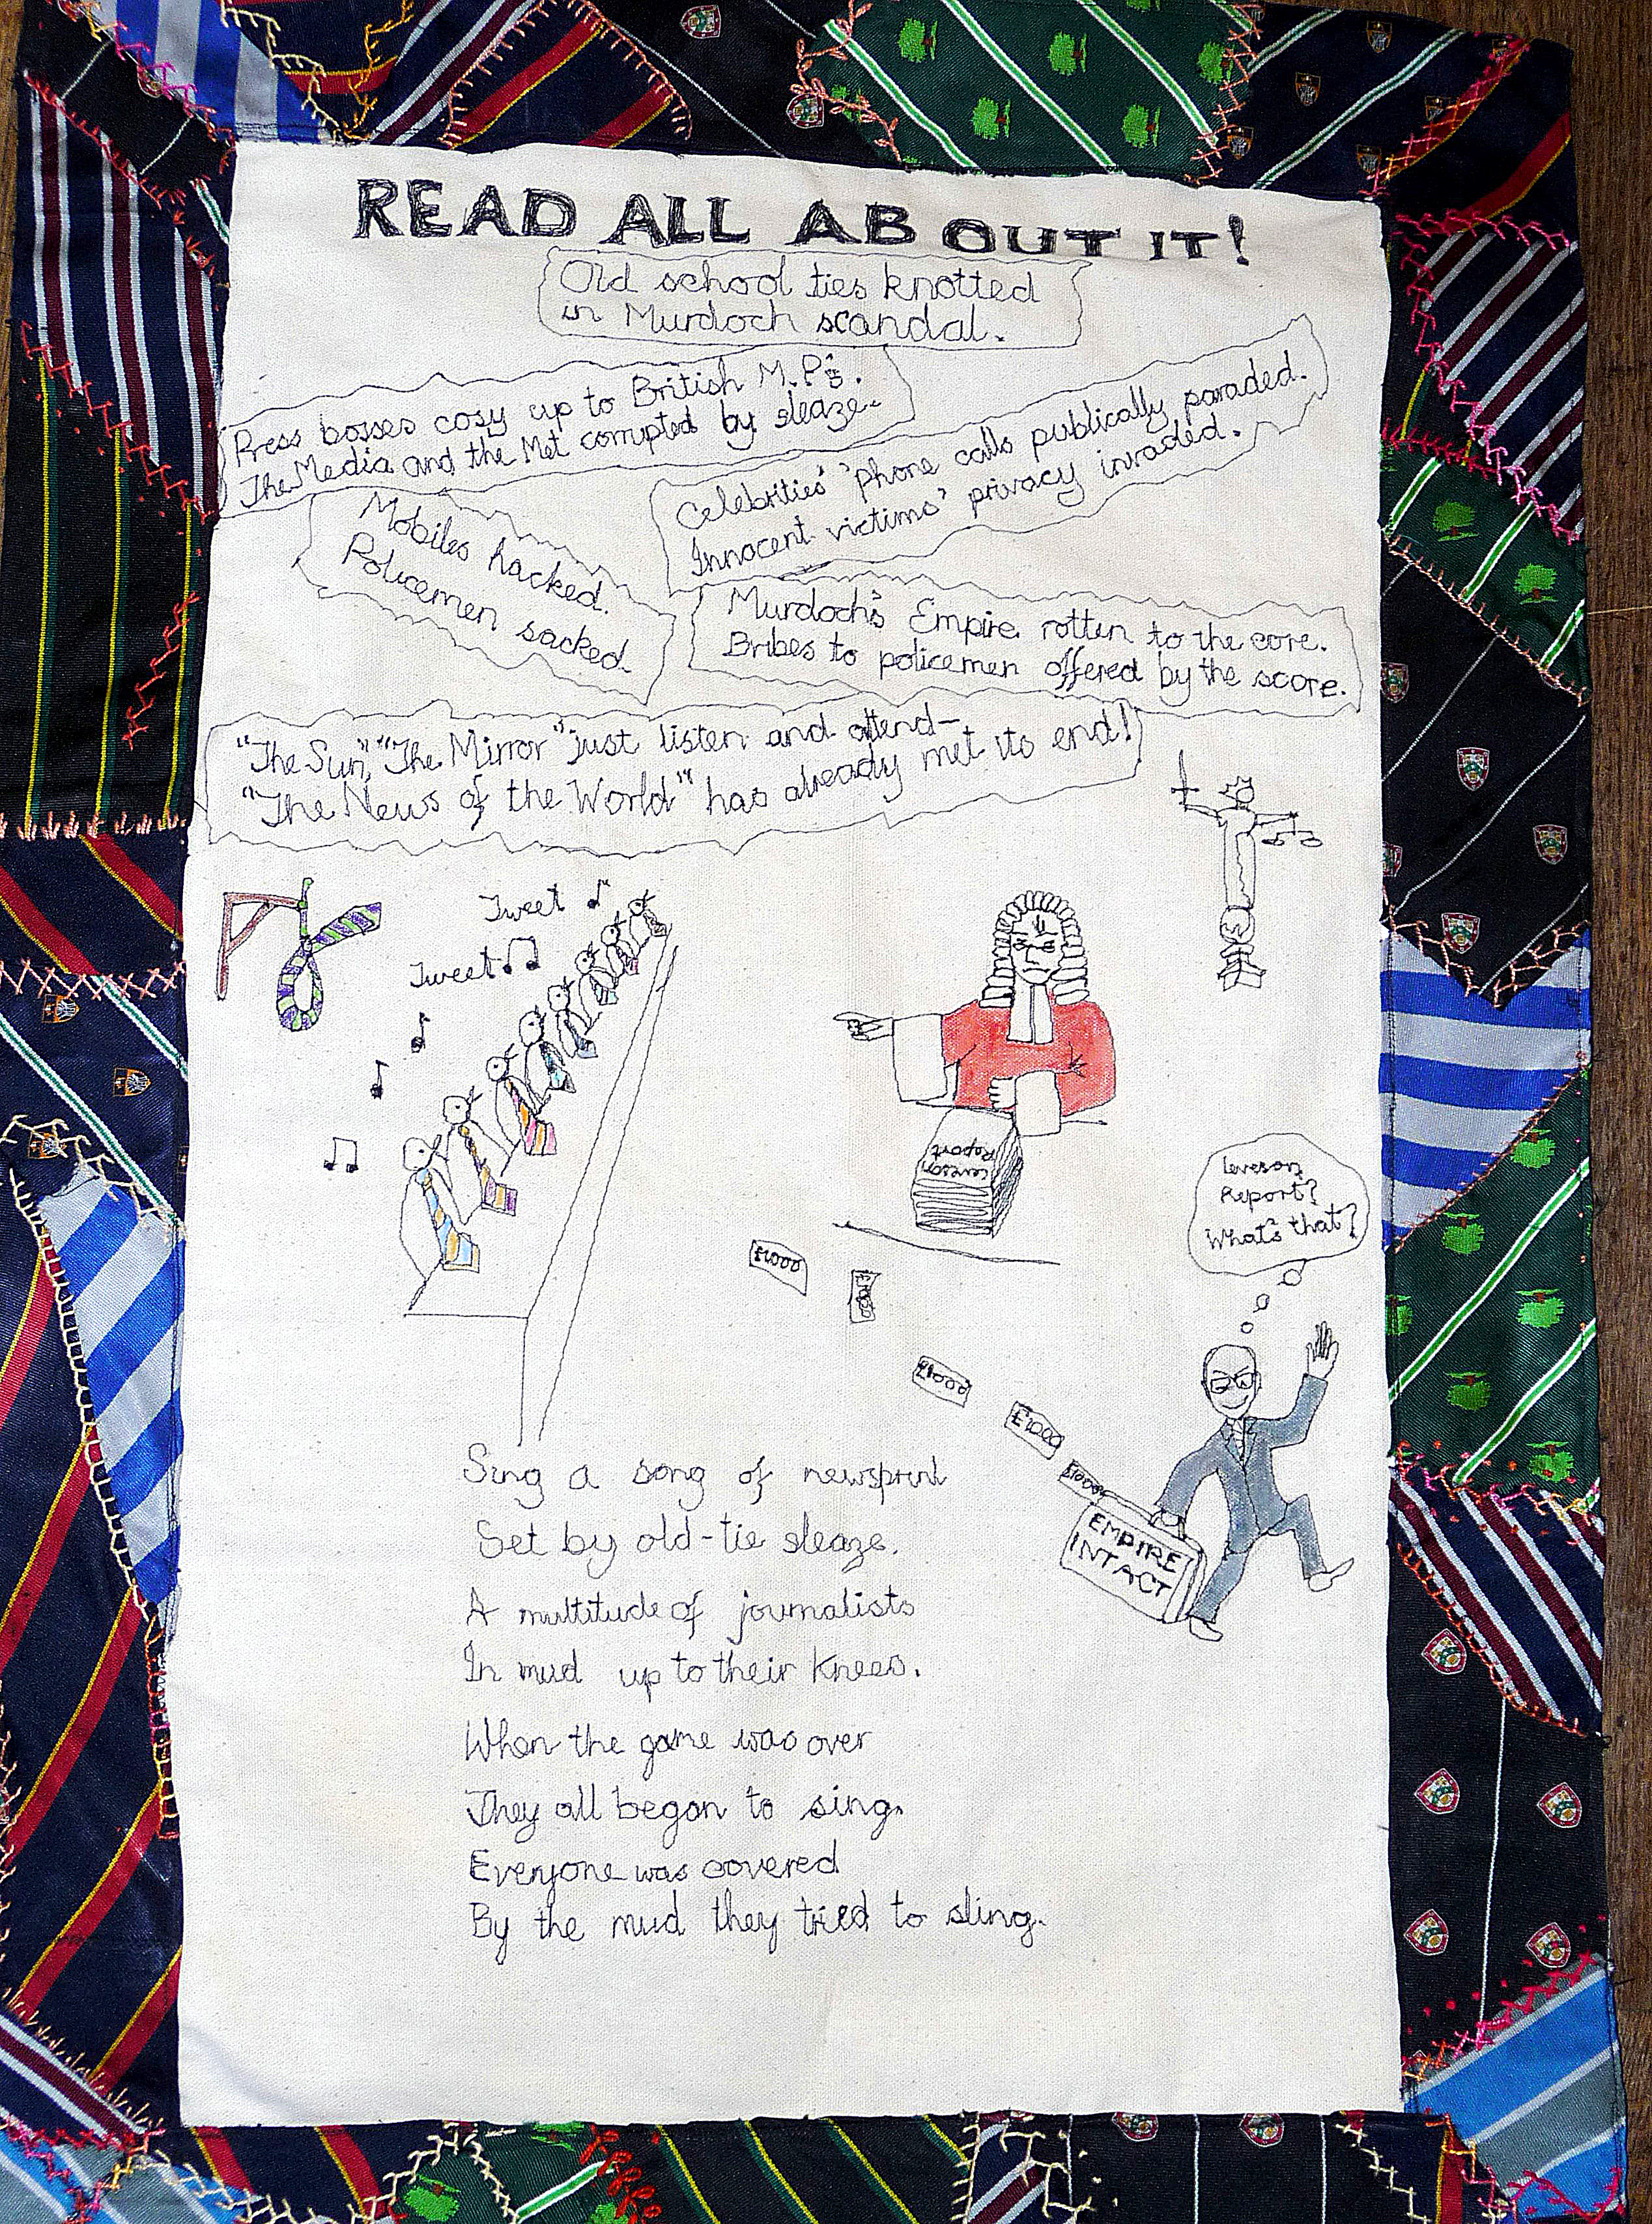 READ ALL ABOUT IT!
Old school ties knotted
in Murdoch scandal.
Press bosses cosy up to British M.P's.
The Media and the Met corrupted by sleaze.
Celebrities' 'phone calls publically paraded.
Innocent victims' privacy invaded.
Mobiles hacked.
Policemen sacked.
Murdoch's Empire rotten to the core.
Bribes to policemen offered by the score.
"The Sun", "The Mirror" just listen and attend-
"The News of the World" has already met its end!
Tweet
Tweet
Leveson
Report
Leveson
Report?
What's that?
£1000
£1000
£1000
£1000
£1000
EMPIRE
INTACT
Sing a song of newsprint
Set by old-tie sleaze.
A multitude of journalists
In mud up to their knees.
When the game was over
They all began to sing.
Everyone was covered
By the mud they tried to sling.